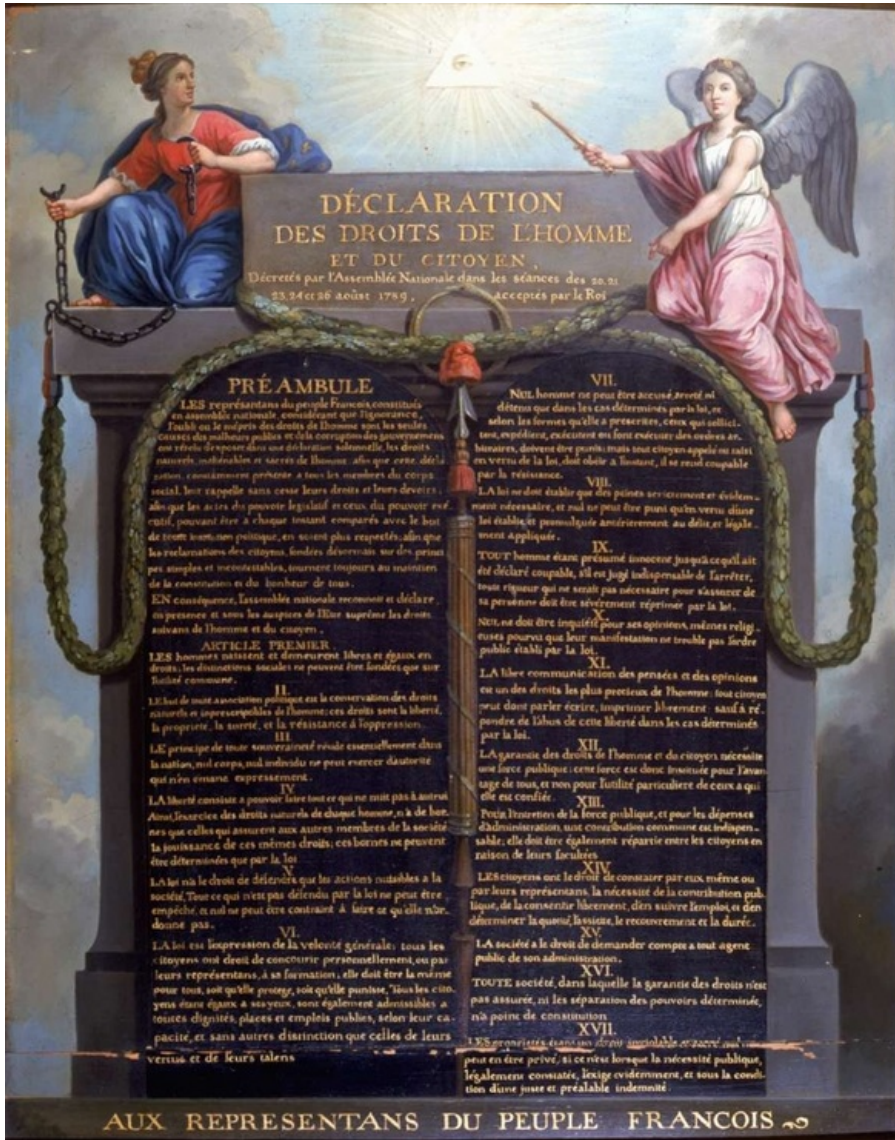 DÉCLARATION
DES DROITS DE L'HOMME
ET DU CITOYEN,
Décretés par l'Assemblée Nationale dans les séances des 20.21
23.24 et 26 août 1789, acceptés par le Roi
PRÉAMBULE
LES représentans du peuple François, constitués
en assemblée nationale, considérant que l'ignorance,
l'oubli ou le mépris des droits de l'homme sont les seules
causes des malheurs publics et de la corruption des gouvernemens
ont résolu d'exposer dans une déclaration solemnelle, les droits
naturels, inaliénables et sacrés de l'homme: afin que cette décla
ration, constamment présente a tous les membres du corps
social, leur rappelle sans cesse leurs droits et leurs devoirs:
afin que les actes du pouvoir legislatif et ceux du pouvoir exé
cutif, pouvant être à chaque instant comparés avec le but
de toute institution politique, en soient plus respectés: afin que
les reclamations des citoyens, fondées désormais sur des princi
pes simples et incontestables, tournent toujours au maintien
de la constitution et du bonheur de tous.
EN conséquence, l'assemblée nationale reconnoit et déclare,
en presence et sous les auspices de l'Etre suprême les droits
suivans de l'homme et du citoyen.
ARTICLE PREMIER.
LES hommes naissent et demeurent libres et égaux en
droits; les distinctions sociales ne peuvent être fondées que sur
l'utilité commune.
II.
LE but de toute association politique est la conservation des droits
naturels et inprescriptibles de l'homme; ces droits sont la liberté,
la propriété, la sureté, et la résistance à l'oppression.
III.
LE principe de toute souveraineté réside essentiellement dans
la nation, nul corps, nul individu ne peut exercer d'autorité
qui n'en émane expressement.
IV.
LA liberté consiste a pouvoir faire tout ce qui ne nuit pas à autrui
Ainsi, l'exercice des droits naturels de chaque homme, n'a de bor-
nes que celles qui assurent aux autres membres de la société
la jouissance de ces mêmes droits; ces bornes ne peuvent
être déterminées que par la loi
V.
LA loi n'a le droit de défendre que les actions nuisibles a la
société, Tout ce qui n'est pas défendu par la loi ne peut être
empêché, et nul ne peut être contraint à faire ce qu'elle n'or-
donne pas.
VI.
LA loi est l'expression de la volonté générale; tous les
citoyens ont droit de concourir personnellement, ou par
leurs représentans, à sa formation; elle doit être la même
pour tous, soit qu'elle protege, soit qu'elle punisse, Tous les cito
yens étant égaux a ses yeux, sont également admissibles a
toutes dignités, places et emplois publics, selon leur ca-
pacité, et sans autres distinction que celles de leurs
vertus et de leurs talens
VII.
NUL homme ne peut être accusé, arreté, ni
détenu que dans les cas déterminés par la loi, et
selon les formes qu'elle a prescrites, ceux qui sollici-
tent, expédient, exécutent ou font exécuter des ordres ar-
bitraires, doivent être punis; mais tout citoyen appelé ou saisi
en vertu de la loi, doit obéir a l'instant, il se rend coupable
par la résistance.
VIII.
LA loi ne doit établir que des peines strictement et évidem-
ment nécessaire, et nul ne peut être puni qu'en vertu d'une
loi établie et promulguée antérierement au délit, et légale-
ment appliquée.
IX.
TOUT homme étant présumé innocent jusqu'à ce qu'il ait
été déclaré coupable, s'il est jugé indispensable de l'arrêter,
toute rigueur qui ne serait pas nécessaire pour s'assurer de
sa personne doit être sévérement réprimée par la loi.
X.
NUL ne doit être inquiété pour ses opinions, mêmes religi
euses pourvu que leur manifestation ne trouble pas l'ordre
public établi par la loi.
XI.
LA libre communication des pensées et des opinions
est un des droits les plus precieux de l'homme: tout citoyen
peut dont parler écrire, imprimer librement: sauf à ré-
pondre de l'abus de cette liberté dans les cas déterminés
par la loi.
XII.
LA garantie des droits de l'homme et du citoyen nécessite
une force publique: cette force est donc instituée pour l'avan
tage de tous, et non pour l'utilité particuliere de ceux a qui
elle est confiée.
XIII.
Pour l'entretien de la force publique, et pour les dépenses
d'administration, une contribution commune est indispen-
sable; elle doit être également répartie entre les citoyens en
raison de leurs facultées
XIV.
LES citoyens ont le droit de constater par eux même ou
par leurs représentans, la nécessité de la contribution pub-
lique, de la consentir librement, d'en suivre l'emploi, et d'en
déterminer la quotité, l'assiette, le recouvrement et la durée.
XV.
LA société a le droit de demander compte a tout agent
public de son administration.
XVI.
TOUTE société, dans laquelle la garantie des droits n'est
pas assurée, ni les séparation des pouvoirs déterminée,
n'a point de constitution
XVII.
LES propriétés étant un droit inviolable et sacré, nul ne
peut en être privé, si ce n'est lorsque la nécessité publique,
légalement constatée, l'exige evidemment, et sous la condi-
tion d'une juste et préalable indemnité.
AUX REPRESENTANS DU PEUPLE FRANCOIS